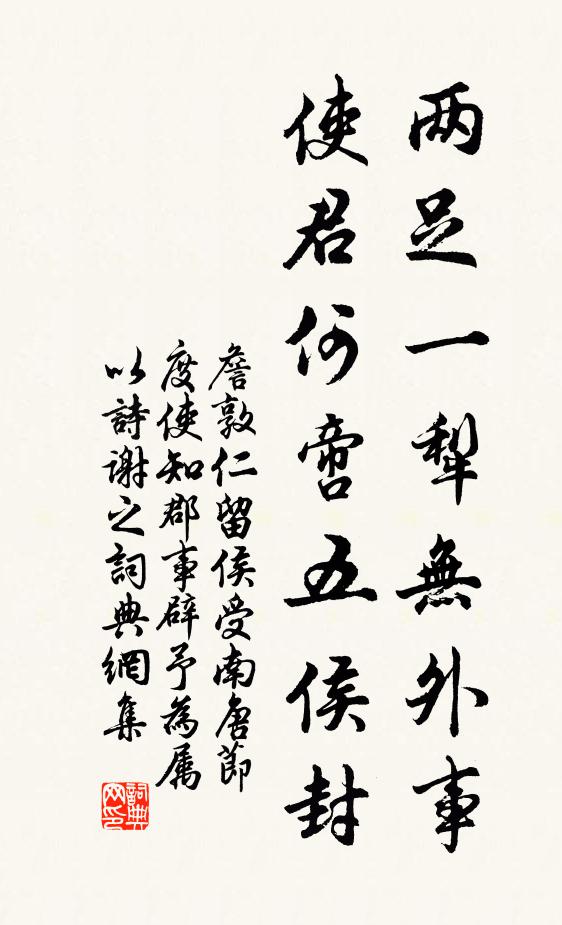 两足一犁無外事
使君何啻五侯封
詹敦仁留侯受南唐節
度使知郡事辟予為属
以詩谢之詞典網集
詞典
网印